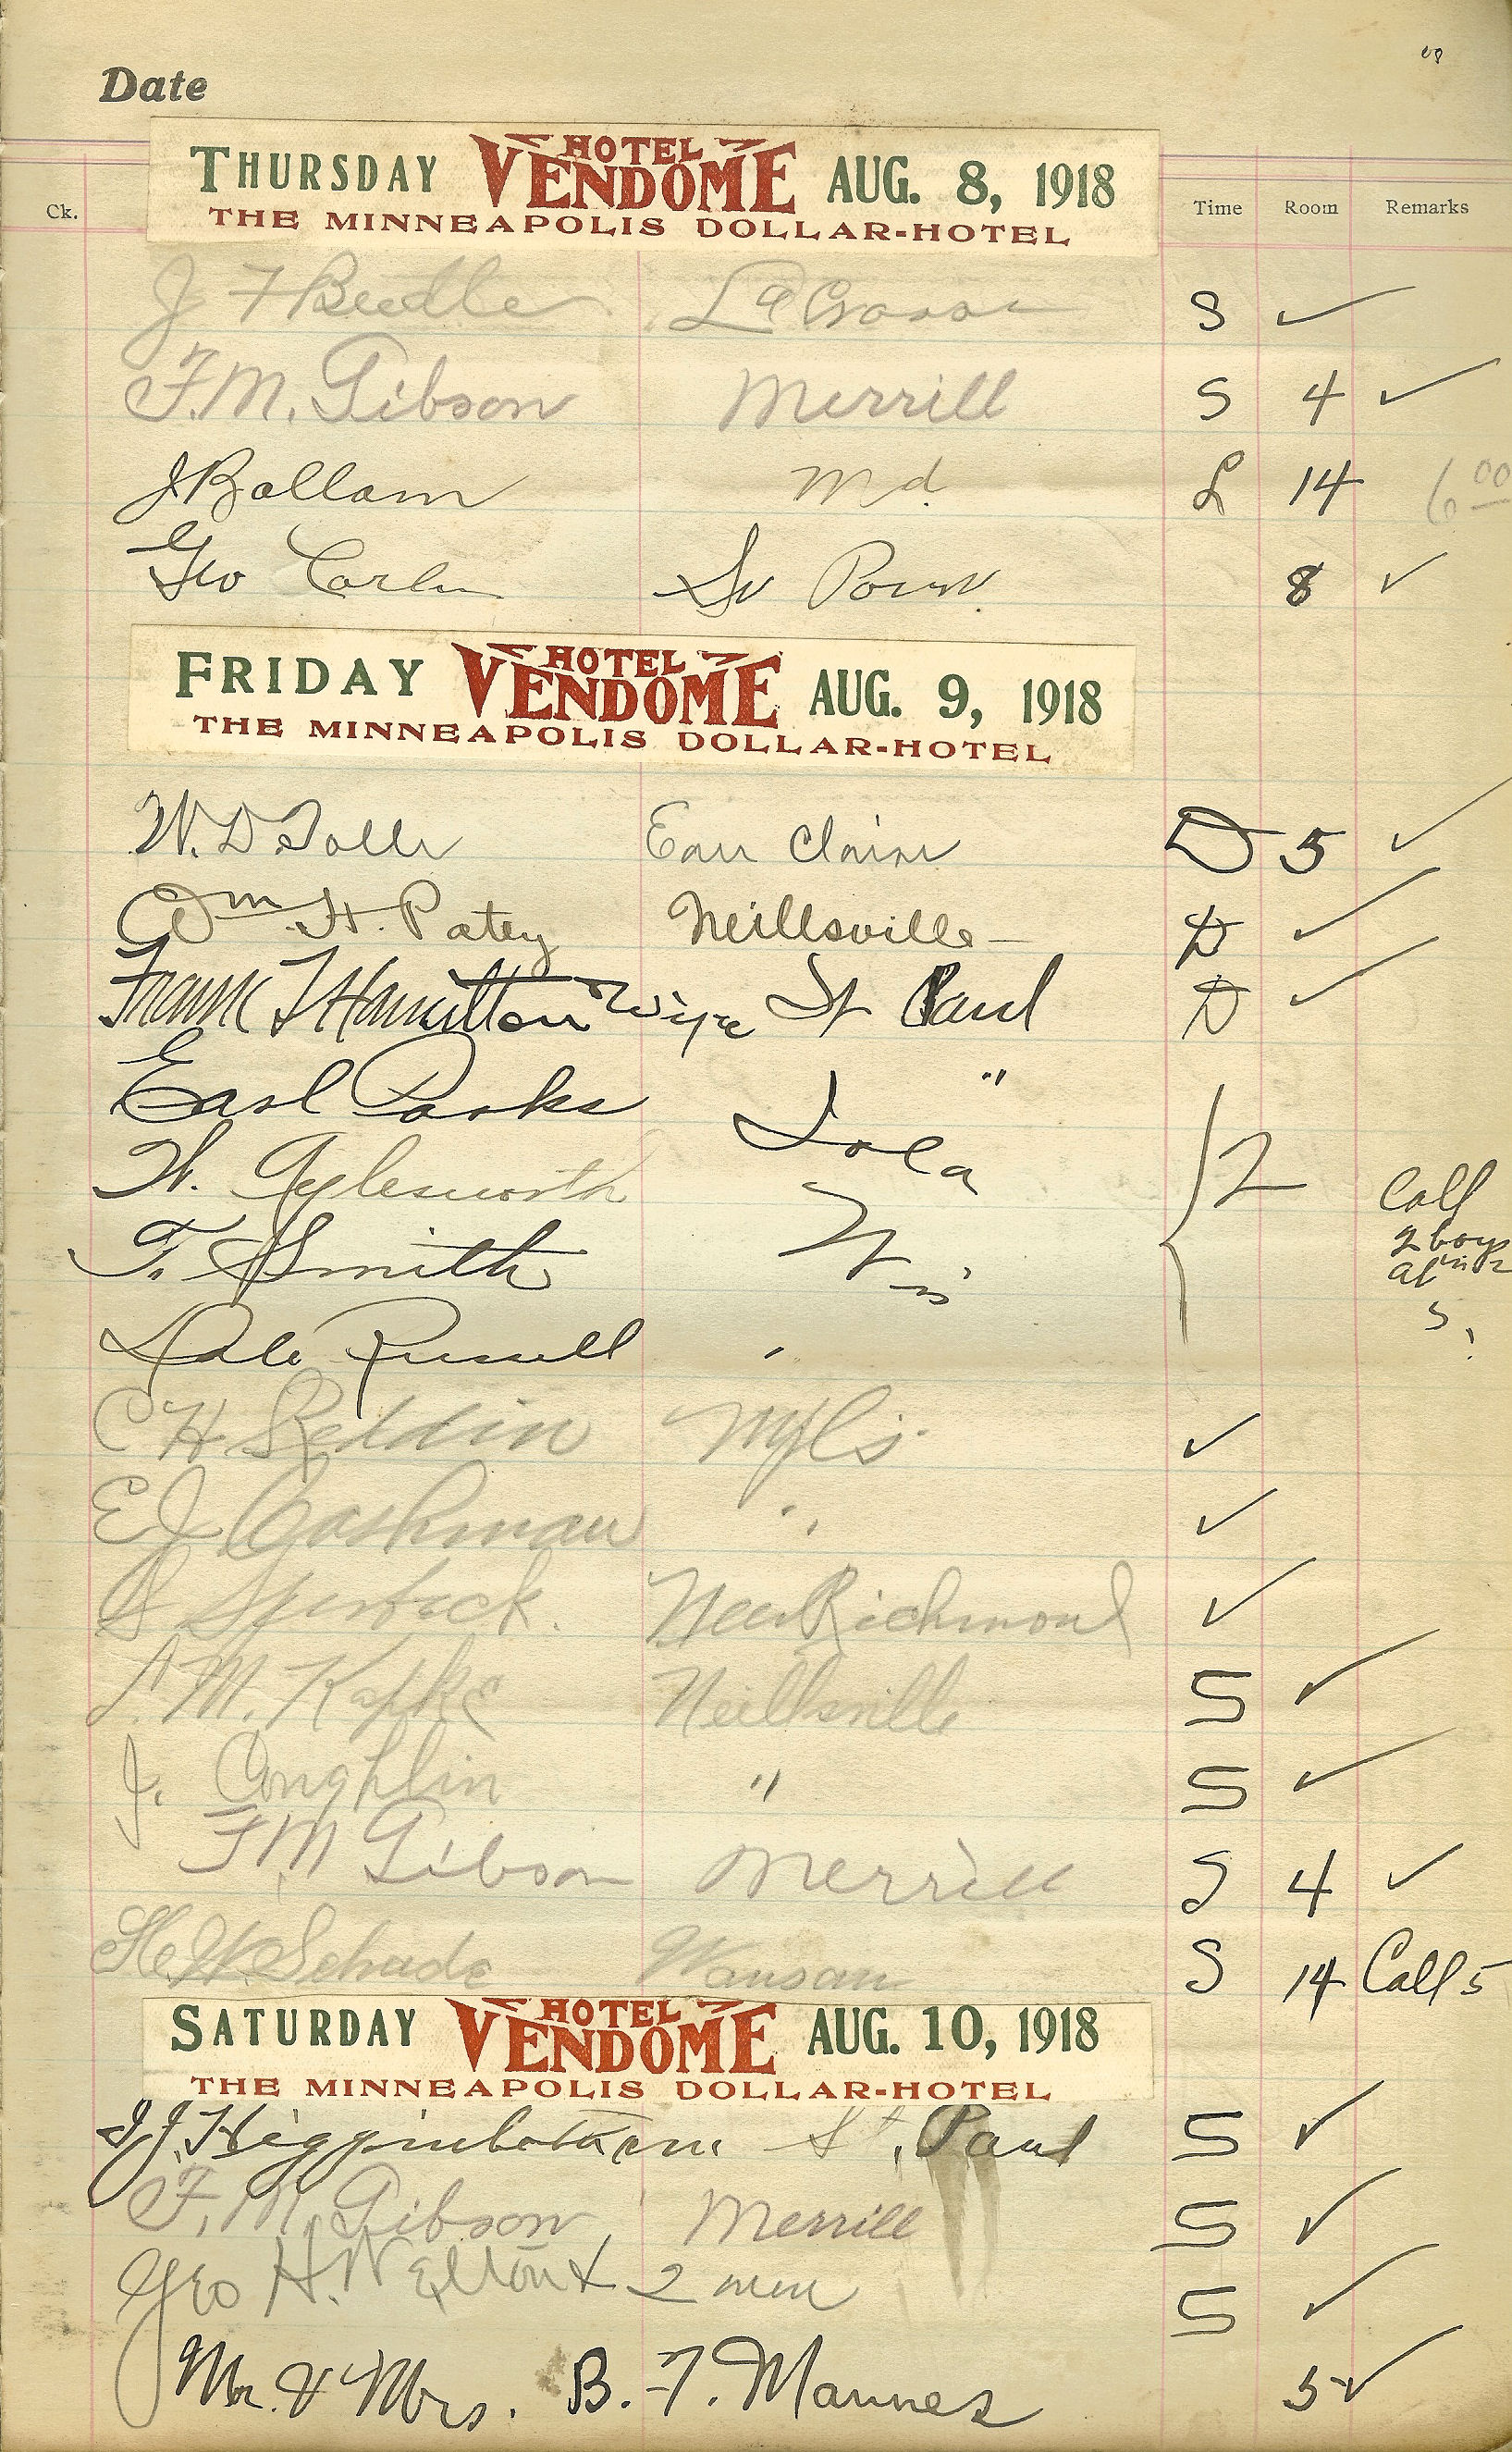 Date
THURSDAY HOTEL VENDOME AUG. 8, 1918
THE MINNEAPOLIS DOLLAR-HOTEL
Ck. Time Room Remarks
J F Beedle La Crosse S ✓
F.M. Gibson Merrill S 4 ✓
J Ballam Md. L 14 6 00
Geo Carlin 8 ✓
FRIDAY HOTEL VENDOME AUG. 9, 1918
THE MINNEAPOLIS DOLLAR-HOTEL
W. D. Eau Claire D 5 ✓
Wm H. Patey Neillsville D ✓
Frank T Hamilton & Wife St Paul D ✓
Earl Parks "
Iola
W. Aylesworth 2 Call
T. Smith Wis 2 boys
at
5
Dale Russell "
C H Mpls. ✓
E J Cashman " ✓
S New Richmond ✓
M. Kapke Neillsville S ✓
J. Coughlin " S ✓
F M Gibson Merrill S 4 ✓
H. W. Schade Wausau S 14 Call 5
SATURDAY HOTEL VENDOME AUG. 10, 1918
THE MINNEAPOLIS DOLLAR-HOTEL
J. Higginbotham St. Paul S ✓
F. M. Gibson Merrill S ✓
Geo H. Welton & 2 men S ✓
Mr. & Mrs. B. F. Mannes 5 ✓